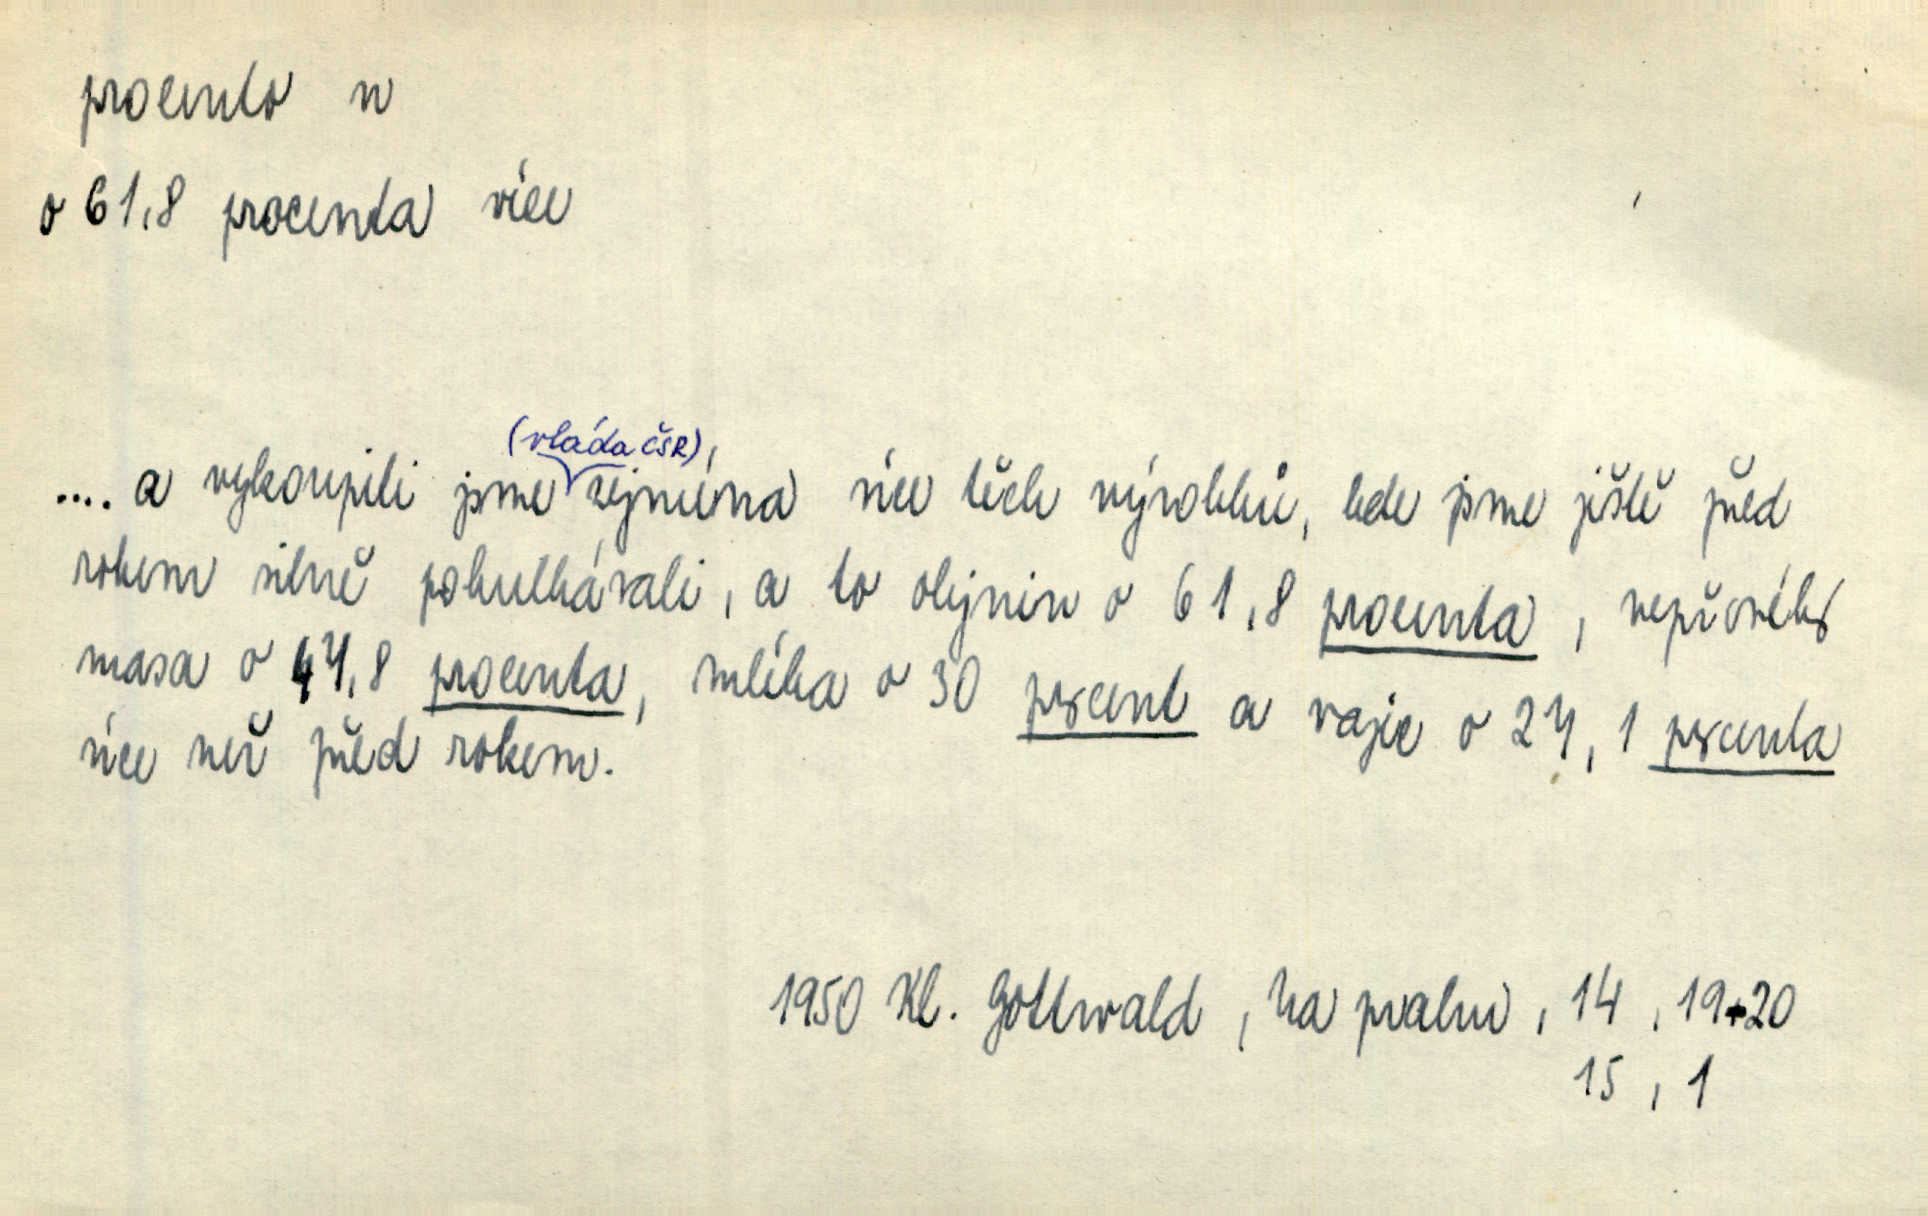 procento n
o 61,8 procenta více
(vláda ČSR)
.... a vykoupili jsme zejména více těch výrobků, kde jsme ještě před
rokem silně pokulhávali, a to olejnin o 61,8 procenta, vepřového
masa o 47,8 procenta, mléka o 30 procent a vajec o 27,1 procenta
více než před rokem.
1950 Kl. Gottwald, Na prahu, 14, 19+20
15, 1